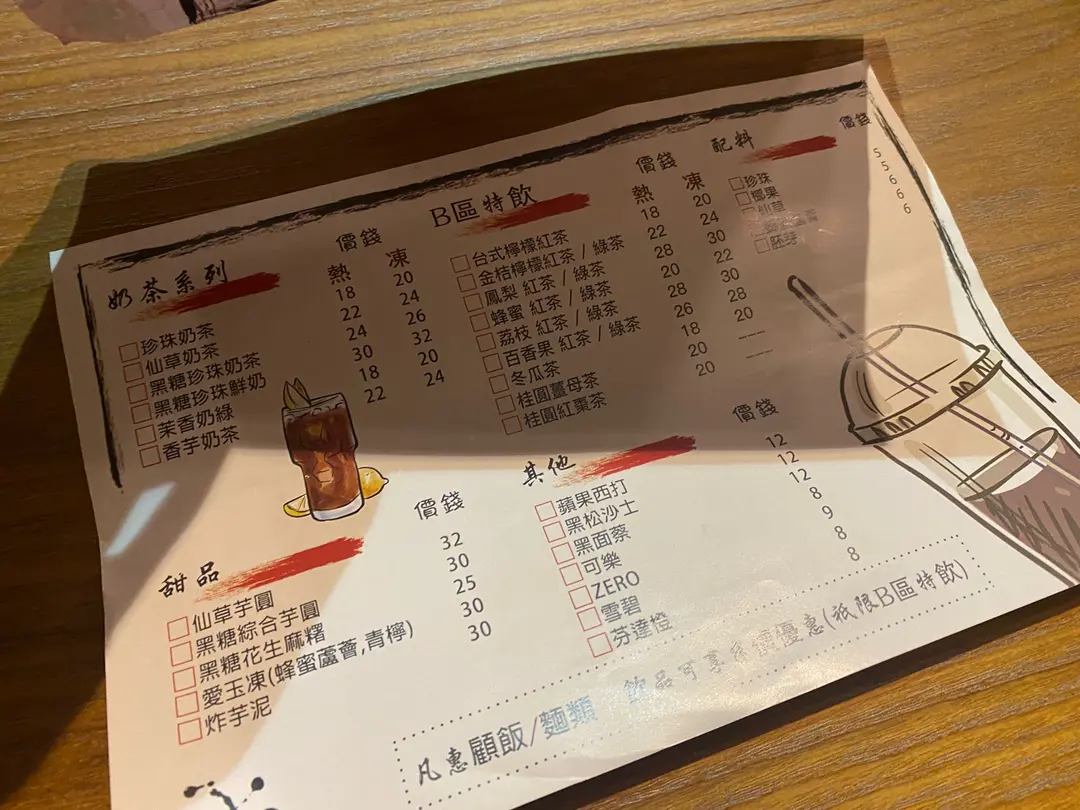 奶茶系列
價錢
熱 凍
珍珠奶茶 18 20
仙草奶茶 22 24
黑糖珍珠奶茶 24 26
黑糖珍珠鮮奶 30 32
茉香奶綠 18 20
香芋奶茶 22 24
B區特飲
價錢
熱 凍
台式檸檬紅茶 18 20
金桔檸檬紅茶 / 綠茶 22 24
鳳梨 紅茶 / 綠茶 28 30
蜂蜜 紅茶 / 綠茶 20 22
荔枝 紅茶 / 綠茶 28 30
百香果 紅茶 / 綠茶 26 28
冬瓜茶 18 20
桂圓薑母茶 20 ---
桂圓紅棗茶 20 ---
配料 價錢
珍珠 5
椰果 5
仙草 6
6
胚芽 6
甜品 價錢
仙草芋圓 32
黑糖綜合芋圓 30
黑糖花生麻糬 25
愛玉凍(蜂蜜蘆薈,青檸) 30
炸芋泥 30
其他 價錢
蘋果西打 12
黑松沙士 12
黑面蔡 12
可樂 8
ZERO 9
雪碧 8
芬達橙 8
凡惠顧飯/麵類 飲品可享 優惠(祇限B區特飲)